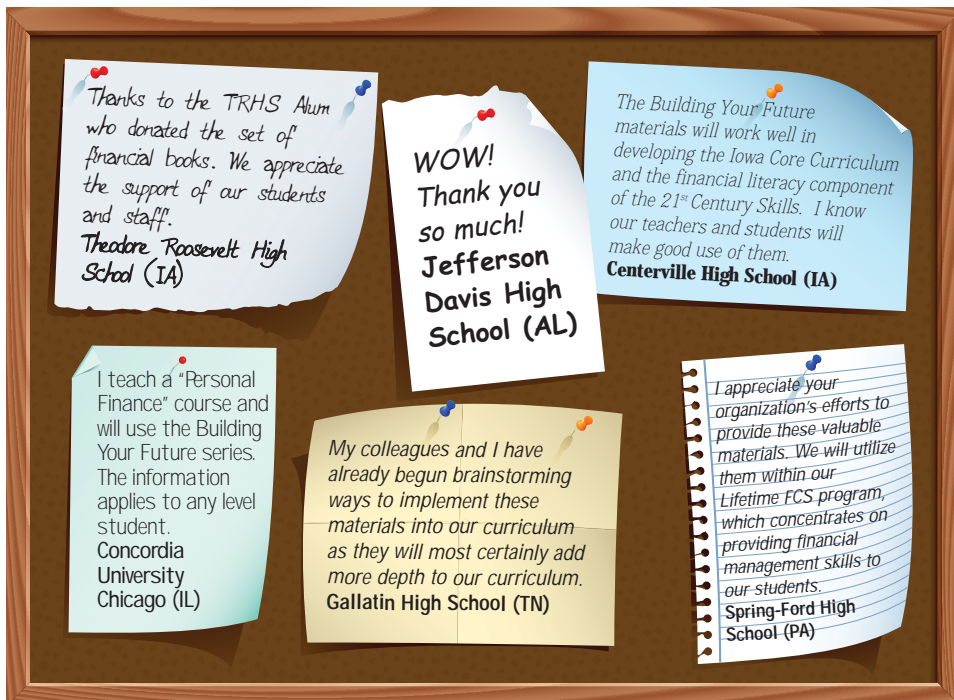 Thanks to the TRHS Alum
who donated the set of
financial books. We appreciate
the support of our students
and staff.
Theodore Roosevelt High
School (IA)
WOW!
Thank you
so much!
Jefferson
Davis High
School (AL)
The Building Your Future
materials will work well in
developing the Iowa Core Curriculum
and the financial literacy component
of the 21st Century Skills. I know
our teachers and students will
make good use of them.
Centerville High School (IA)
I teach a "Personal
Finance" course and
will use the Building
Your Future series.
The information
applies to any level
student.
Concordia
University
Chicago (IL)
My colleagues and I have
already begun brainstorming
ways to implement these
materials into our curriculum
as they will most certainly add
more depth to our curriculum.
Gallatin High School (TN)
I appreciate your
organization's efforts to
provide these valuable
materials. We will utilize
them within our
Lifetime FCS program,
which concentrates on
providing financial
management skills to
our students.
Spring-Ford High
School (PA)